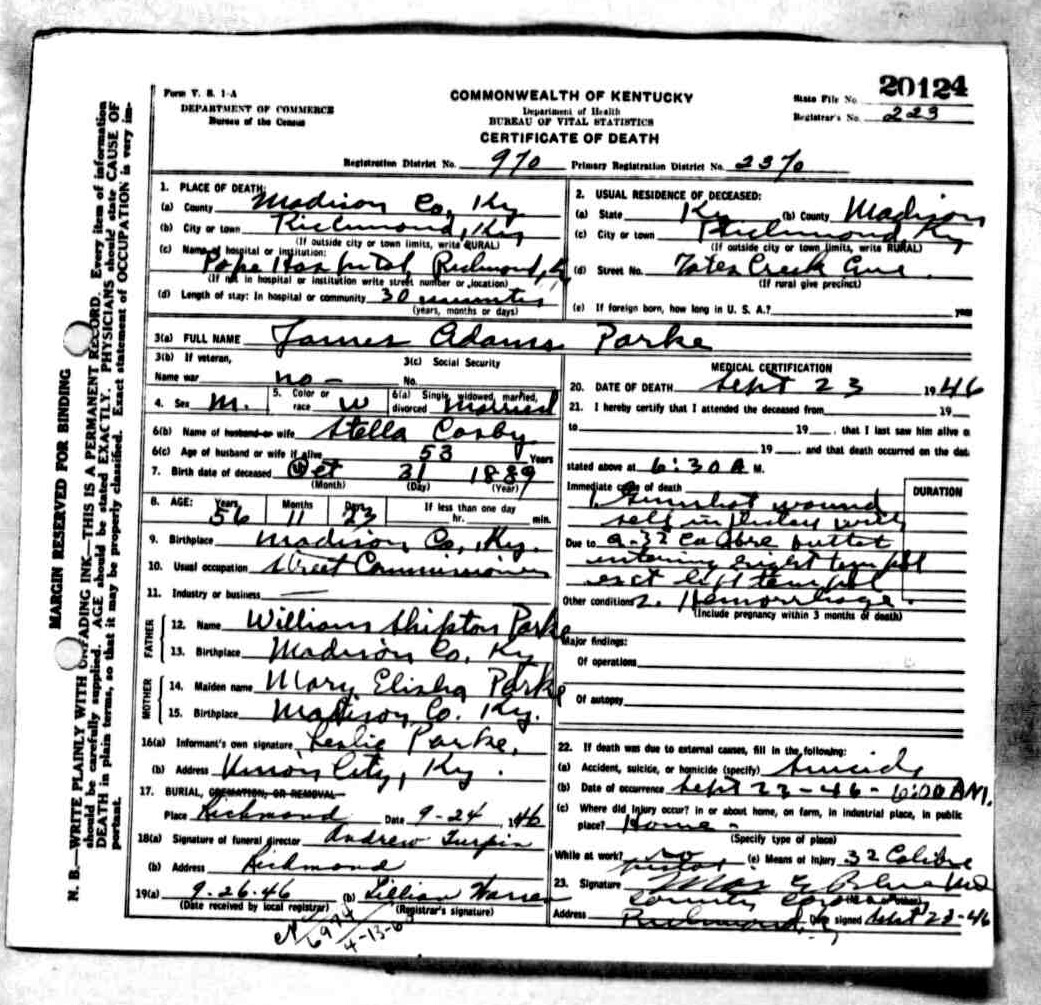 Form V. S. 1-A
DEPARTMENT OF COMMERCE
Bureau of the Census
COMMONWEALTH OF KENTUCKY
Department of Health
BUREAU OF VITAL STATISTICS
CERTIFICATE OF DEATH
State File No. 20124
Registrar's No. 223
Registration District No. 970 Primary Registration District No. 2370
1. PLACE OF DEATH:
(a) County Madison Co, Ky
(b) City or town Richmond, Ky
(If outside city or town limits, write RURAL)
(c) Name of hospital or institution:
Pope Hospital, Richmond, Ky
(If not in hospital or institution write street number or location)
(d) Length of stay: In hospital or community 30 minutes
(years, months or days)
2. USUAL RESIDENCE OF DECEASED:
(a) State Ky (b) County Madison
(c) City or town Richmond Ky
(If outside city or town limits, write RURAL)
(d) Street No. Tates Creek Ave.
(If rural give precinct)
(e) If foreign born, how long in U. S. A.? year
3(a) FULL NAME James Adams Parke
3(b) If veteran,
Name war no -
3(c) Social Security
No.
4. Sex M. 5. Color or race W 6(a) Single, widowed, married, divorced Married
6(b) Name of husband or wife Stella Cosby
6(c) Age of husband or wife if alive 53 Years
7. Birth date of deceased Oct 31 1889
(Month) (Day) (Year)
8. AGE: Years 56 Months 11 Days 23 If less than one day hr. min.
9. Birthplace Madison Co, Ky.
10. Usual occupation Street Commissioner
11. Industry or business —
FATHER
12. Name William Shipton Parke
13. Birthplace Madison Co, Ky
MOTHER
14. Maiden name Mary Elisha Parke
15. Birthplace Madison Co. Ky.
16(a) Informant's own signature Leslie Parke,
(b) Address Union City, Ky.
17. BURIAL, CREMATION, OR REMOVAL
Place Richmond Date 9-24 1946
18(a) Signature of funeral director Andrew Turpin
(b) Address Richmond
19(a) 9-26-46 (b) Lillian Warren
(Date received by local registrar) (Registrar's signature)
6974
4-13-6
MEDICAL CERTIFICATION
20. DATE OF DEATH Sept 23 1946
21. I hereby certify that I attended the deceased from 19
to 19 , that I last saw him alive o
19 and that death occurred on the dat
stated above at 6:30 A M.
Immediate cause of death
DURATION
1. Gunshot wound
self inflicted with
Due to a-32 Calibre bullet
entering right templ
exct left templ
Other conditions 2. Hemorrhage.
(Include pregnancy within 3 months of death)
Major findings:
Of operations
Of autopsy
22. If death was due to external causes, fill in the following:
(a) Accident, suicide, or homicide (specify) Suicide
(b) Date of occurrence Sept 23-46-6:00 AM.
(c) Where did injury occur? in or about home, on farm, in industrial place, in public
place? Home -
(Specify type of place)
While at work? no (e) Means of Injury 32 Calibre
pistol
23. Signature MD
County Coroner
Address Richmond, Ky Date signed Sept 23-46
MARGIN RESERVED FOR BINDING
N. B.—WRITE PLAINLY WITH UNFADING INK—THIS IS A PERMANENT RECORD. Every item of information
should be carefully supplied. AGE should be stated EXACTLY. PHYSICIANS should state CAUSE OF
DEATH in plain terms, so that it may be properly classified. Exact statement of OCCUPATION is very im-
portant.